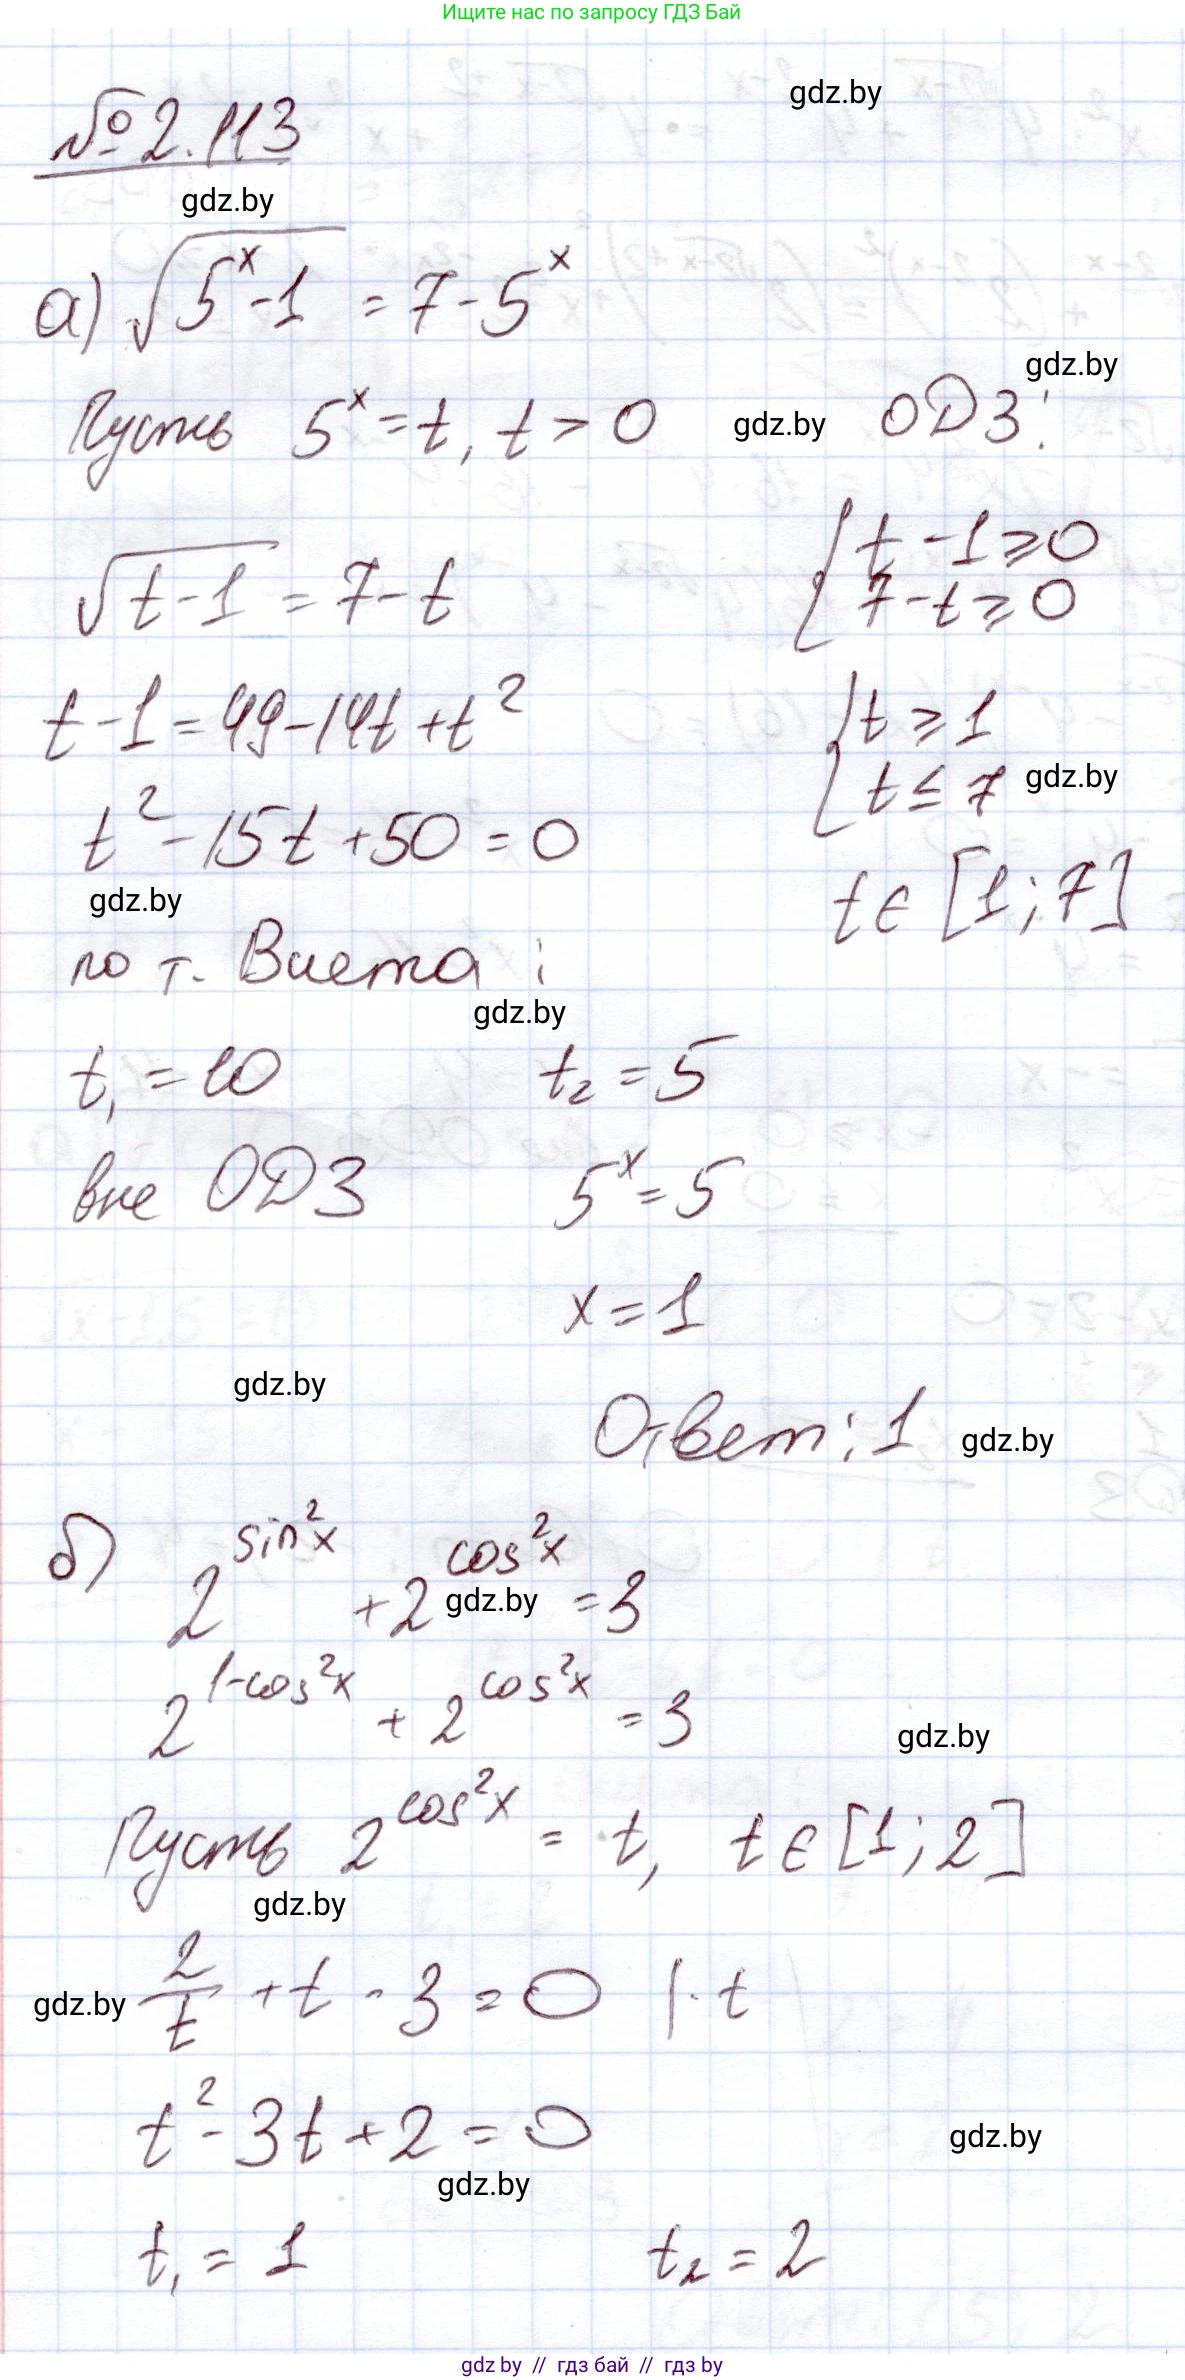 Ищите нас по запросу ГДЗ Бай
gdz.by
№ 2.113
gdz.by
а) √(5^x - 1) = 7 - 5^x
gdz.by
Пусть 5^x = t, t > 0 gdz.by ОДЗ:
{ t - 1 ⩾ 0
√(t - 1) = 7 - t { 7 - t ⩾ 0
t - 1 = 49 - 14t + t² { t ⩾ 1
{ t ≤ 7 gdz.by
t² - 15t + 50 = 0
gdz.by t ∈ [1; 7]
по т. Виета:
gdz.by
t₁ = 10 t₂ = 5
вне ОДЗ 5^x = 5
x = 1
gdz.by
Ответ: 1 gdz.by
б) 2^(sin²x) + 2^(cos²x) = 3
gdz.by
2^(1-cos²x) + 2^(cos²x) = 3
gdz.by
Пусть 2^(cos²x) = t, t ∈ [1; 2]
gdz.by
gdz.by 2/t + t - 3 = 0 | · t
t² - 3t + 2 = 0 gdz.by
gdz.by
t₁ = 1 t₂ = 2
gdz.by // гдз бай // гдз by